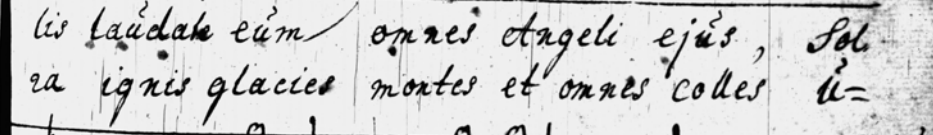 lis laudate eum omnes Angeli ejus, Sol
ra ignis glacies montes et omnes colles u=